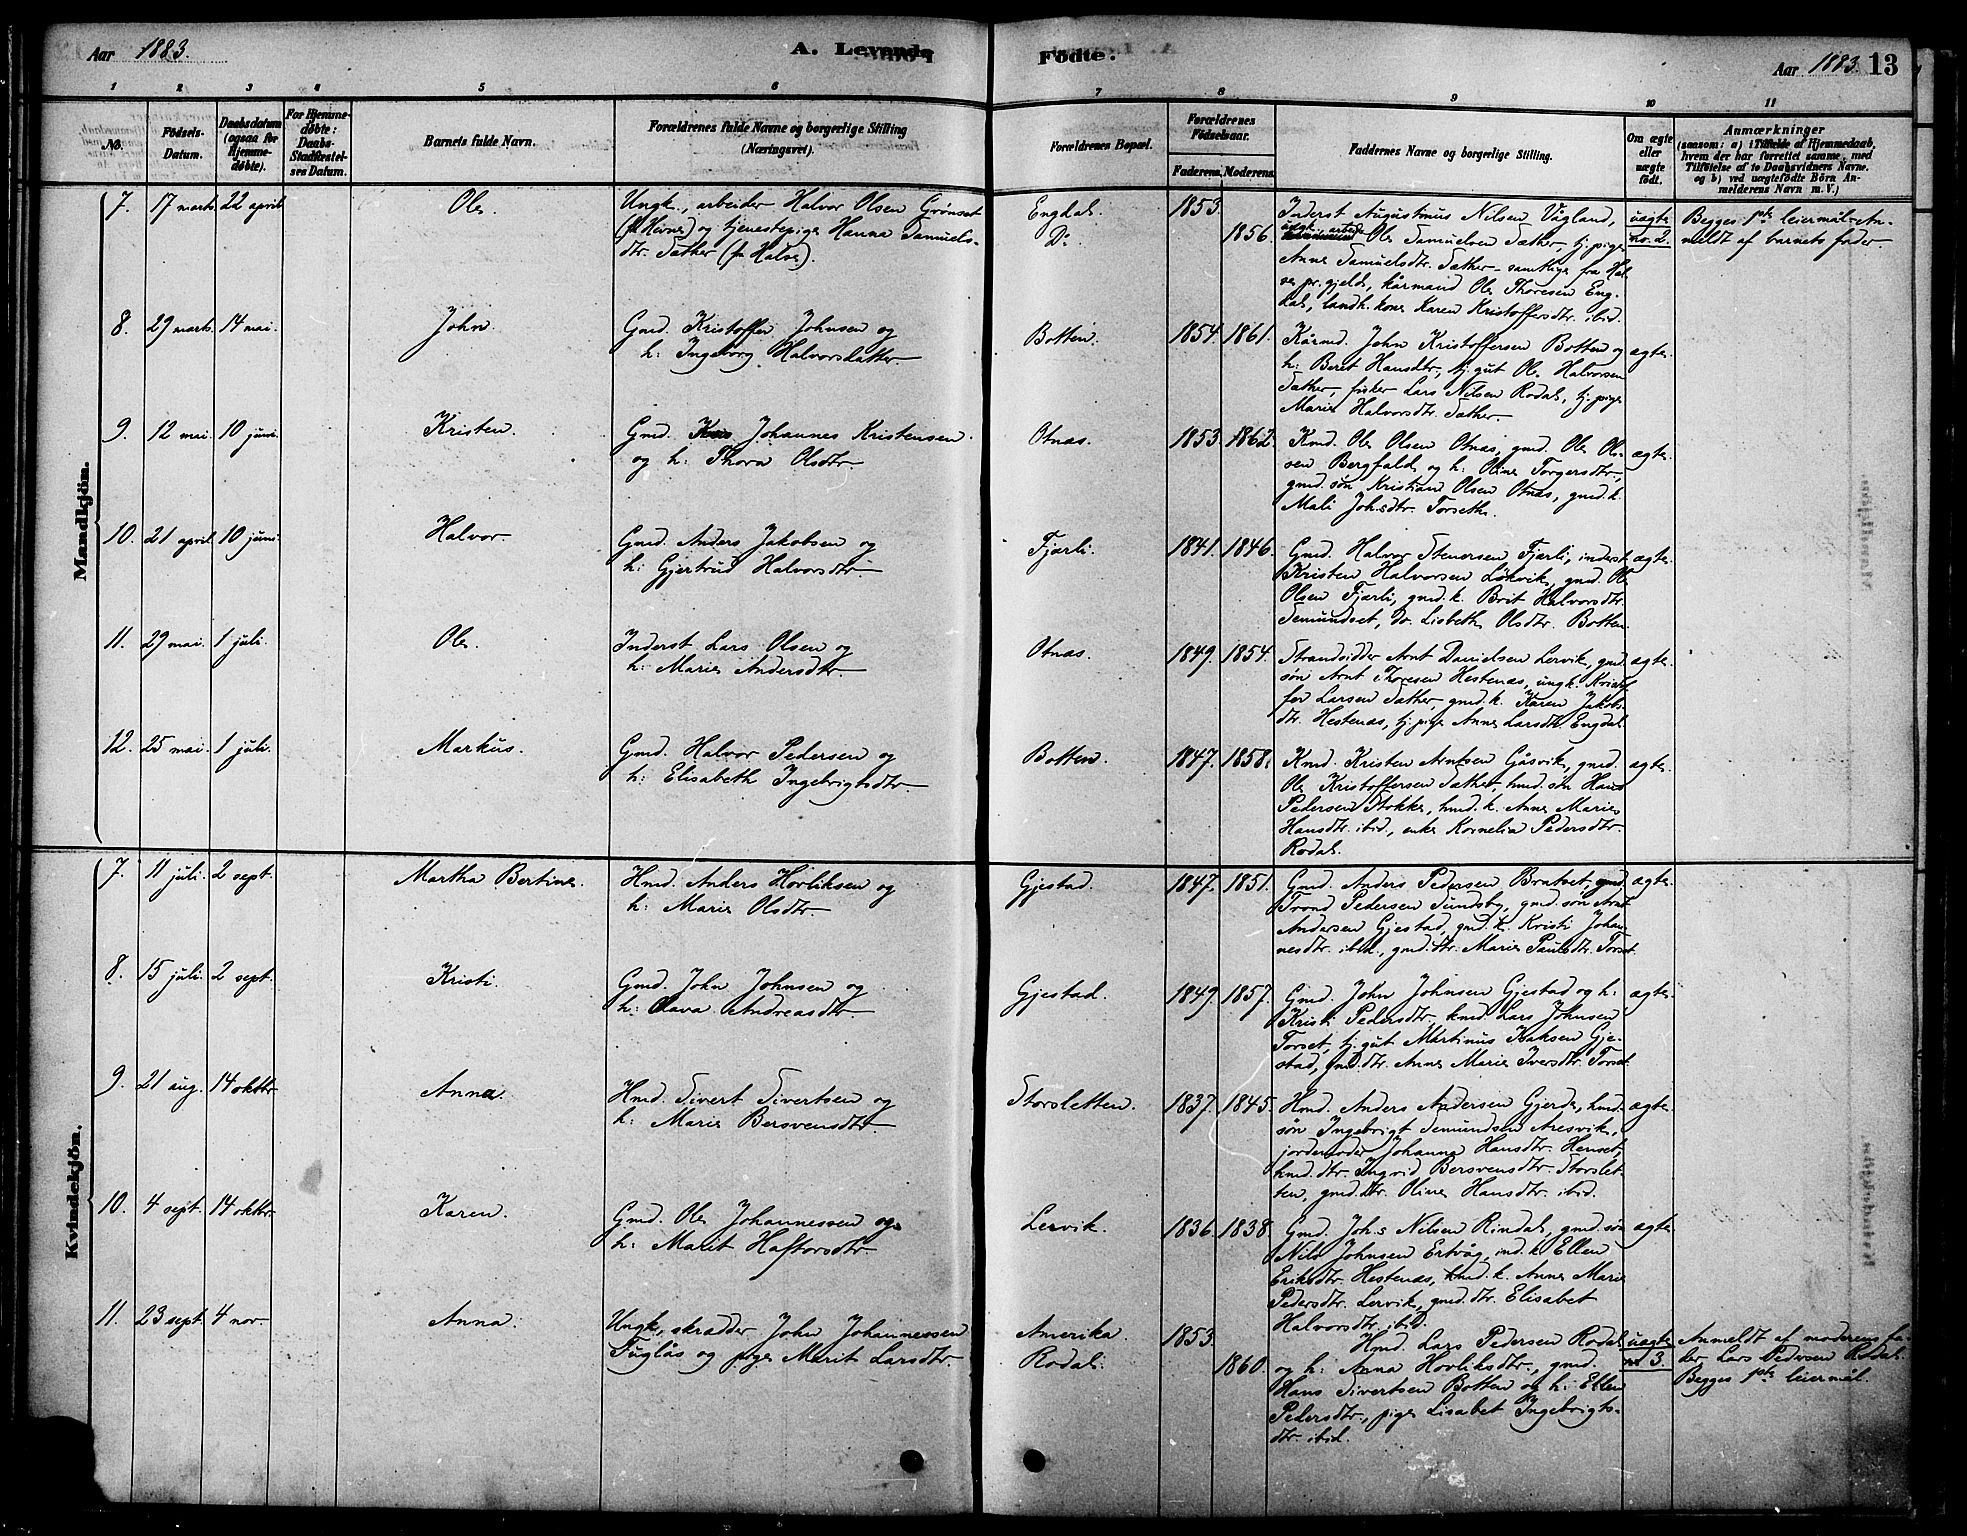 Aar 1883.
A. Levende
Födte.
Aar 1883. 13
1 2 3 4 5 6 7 8 9 10 11
No.
Födsels-
Datum.
Daabsdatum
(ogsaa for
Hjemme-
döbte).
For Hjemme-
døbte:
Daabs-
Stadfæstel-
ses Datum.
Barnets fulde Navn.
Forældrenes fulde Navne og borgerlige Stilling
(Næringsvei).
Forældrenes Bopæl.
Forældrenes
Födselsaar.
Faderens. Moderens.
Faddernes Navne og borgerlige Stilling.
Om ægte
eller
uægte
født.
Anmærkninger
(saasom: a) i Tilfælde af Hjemmedaab,
hvem der har forrettet samme, med
Tilföielse af to Daabsvidners Navne,
og b) ved uægtefödte Börn An-
melderens Navn m. V.)
Mandkjön.
7. 17 marts 22 april
Ole
Ungk., arbeider Halvor Olsen Grønset
(fr Hevne) og tjenestepige Hanna Samuels-
dtr. Sæther (fr Halse).
Engdal.
Do
1853.
1856.
Inderst Augustinus Nilsen Vågland,
ungk. arbeid. Ole Samuelsen Sæther, tj. pige
Anne Samuelsdtr. Sæther – samtlige fra Hal-
se pr.gjeld, kårmand Ole Thoresen Eng-
dal, landh. kone Karen Kristoffersdtr. ibid.
uægte
no. 2.
Begges 1ste leiermål – An-
meldt af barnets fader
8. 29 marts. 14 mai.
John.
Gmd. Kristoffer Johnsen og
h: Ingeborg Halvorsdatter
Botten.
1854. 1861.
Kårmd. John Kristoffersen Botten og
h: Beret Hansdtr, tj. gut Ole Halvorsen
Sæther, fisker Lars Nilsen Rodal, tj. pige
Marie Halvorsdtr. Sæther
ægte.
9. 12 mai. 10 juni.
Kristen.
Gmd. Johannes Kristensen.
og h: Thora Olsdtr.
Otnæs.
1853. 1862.
Kmd. Ole Olsen Otnæs, gmd. Ole Ol-
sen Bergfald og h: Oline Torgersdtr,
gmd. søn Kristian Olsen Otnæs, gmd. k.
Mali Joh.sdtr. Torseth.
ægte.
10. 21 april. 10 juni.
Halvor
Gmd. Anders Jakobsen og
h: Gjertrud Halvorsdtr.
Fjærli.
1841. 1846.
Gmd. Halvor Stenersen Fjærli, inderst
Kristen Halvorsen Løkvik, gmd. Ole
Olsen Fjærli, gmd. k. Brit Halvorsdtr.
Semundset, do. Lisbeth Olsdtr. Botten.
ægte.
11. 29 mai. 1 juli.
Ole.
Inderst Lars Olsen og
h: Marie Andersdtr.
Otnæs.
1849. 1854.
Strandsidder Arnt Danielsen Lervik, gmd.
søn Arnt Thoresen Hestenæs, ungk. Kristof-
fer Larsen Sæther, gmd. k. Karen Jakobs-
dtr. Hestenæs, tj. pige Anne Larsdtr. Engdal
ægte.
12. 25 mai. 1 juli.
Markus.
Gmd. Halvor Pedersen og
h: Elisabeth Ingebrigtsdtr
Botten.
1847. 1858.
Kmd. Kristen Arntsen Gåsvik, gmd.
Ole Kristoffersen Sæther, hmd. søn Hans
Pedersen Stokke, hmd. k. Anne Marie
Hansdtr. ibid, enke Kornelia Pedersdtr.
Rodal.
ægte.
Kvindekjön.
7. 11 juli. 2 sept.
Martha Bertine.
Hmd. Anders Hovliksen og
h: Marie Olsdtr.
Gjestad.
1847. 1851.
Gmd. Anders Pedersen Brutset, gmd
Trond Pedersen Sundsby, gmd. søn Arnt
Andersen Gjestad, gmd. k. Kristi Johan-
nesdtr. ibid., gmd. dtr. Marie Paulsdtr. Torset
ægte.
8. 15 juli. 2 sept.
Kristi
Gmd. John Johnsen og
h: Lava Andreasdtr.
Gjestad.
1849. 1857.
Gmd. John Johnsen Gjestad og h:
Kristi Pedersdtr. kmd. Lars Johnsen
Torset, tj. gut Martinus Isaksen Gje-
stad, gmd. dtr. Anne Marie Iversdtr. Torset
ægte.
9. 21 aug. 14 oktbr
Anna.
Hmd. Sivert Sivertsen og
h: Marie Bersvensdtr.
Storsletten.
1837. 1845.
Hmd. Anders Andersen Gjerde, hmd.
søn Ingebrigt Semundsen Aresvik,
jordemoder Johanna Hansdtr. Henset,
hmd. dtr. Ingrid Bersvensdtr. Storslet-
ten, gmd. dtr. Oline Hansdtr. ibid.
ægte.
10. 4 sept. 14 oktbr.
Karen.
Gmd. Ole Johannessen og
h: Marit Haftorsdtr
Lervik.
1836. 1838.
Gmd. Joh.s Nilsen Rindal, gmd. søn
Nils Johnsen Ertvåg, ind. k. Ellen
Eriksdtr. Hestenæs, kmd. k. Anne Marie
Pedersdtr. Lervik, gmd. dtr. Elisabet
Halvorsdtr. ibid.
ægte
11. 23 sept. 4 nov.
Anna.
Ungk, skrædder John Johannessen
Fuglås og pige Marit Larsdtr.
Amerika.
Rodal.
1853.
1860.
Hmd. Lars Pedersen Rodal
og h: Anna Hovliksdtr., gmd.
Hans Sivertsen Botten og h: Ellen
Pedersdtr., pige Lisabet Ingebrigts-
dtr. ibid.
uægte
no 3.
Anmeldt af moderens fa-
der Lars Pedersen Rodal.
Begges 1ste leiermål.